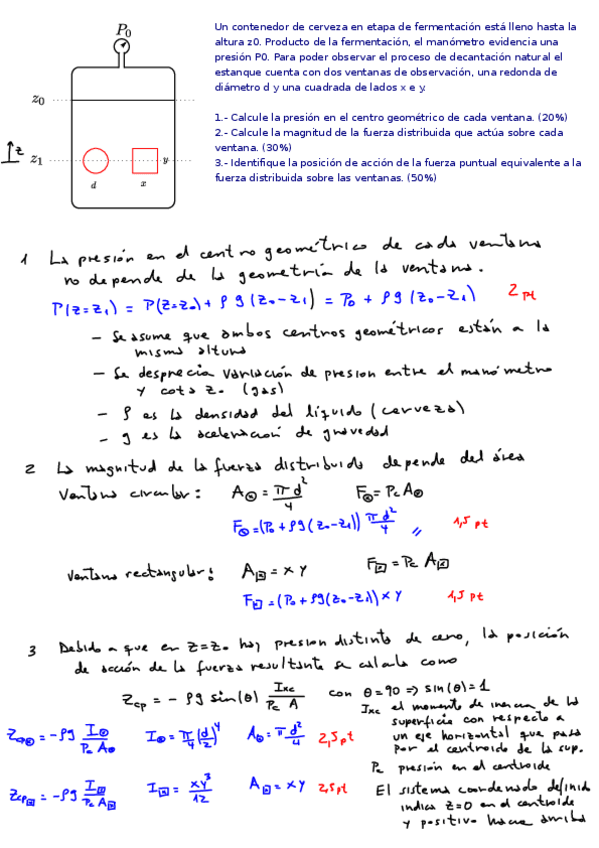 P₀
Un contenedor de cerveza en etapa de fermentación está lleno hasta la
altura z0. Producto de la fermentación, el manómetro evidencia una
presión P0. Para poder observar el proceso de decantación natural el
estanque cuenta con dos ventanas de observación, una redonda de
diámetro d y una cuadrada de lados x e y.
1.- Calcule la presión en el centro geométrico de cada ventana. (20%)
2.- Calcule la magnitud de la fuerza distribuida que actúa sobre cada
ventana. (30%)
3.- Identifique la posición de acción de la fuerza puntual equivalente a la
fuerza distribuida sobre las ventanas. (50%)
z₀
z
z₁
y
d
x
1 La presión en el centro geométrico de cada ventana
no depende de la geometría de la ventana.
P(z=z₁) = P(z=z₀) + ρ g (z₀-z₁) = P₀ + ρ g (z₀-z₁) 2 pt
- Se asume que ambos centros geométricos están a la
misma altura
- Se desprecia variación de presion entre el manómetro
y cota z₀ (gas)
- ρ es la densidad del líquido (cerveza)
- g es la aceleración de gravedad
2 La magnitud de la fuerza distribuida depende del área
Ventana circular: A⊙ = π d²/4 F⊙ = Pc A⊙
F⊙ = (P₀ + ρg(z₀-z₁)) π d²/4 1,5 pt
Ventana rectangular: A⊡ = x y F⊡ = Pc A⊡
F⊡ = (P₀ + ρg(z₀-z₁)) x y 1,5 pt
3 Debido a que en z=z₀ hay presion distinta de cero, la posición
de acción de la fuerza resultante se calcula como
Zcp = - ρg sin(θ) Ixc/(Pc A) con θ=90 => sin(θ)=1
Ixc el momento de inercia de la
superficie con respecto a
un eje horizontal que pasa
por el centroide de la sup.
Zcp⊙ = -ρg I⊙/(Pc A⊙) I⊙ = π/4 (d/2)⁴ A⊙ = π d²/4 2,5 pt
Pc presión en el centroide
Zcp⊡ = -ρg I⊡/(Pc A⊡) I⊡ = xy³/12 A⊡ = xy 2,5 pt
El sistema coordenado definido
indica z=0 en el centroide
y positivo hacia arriba